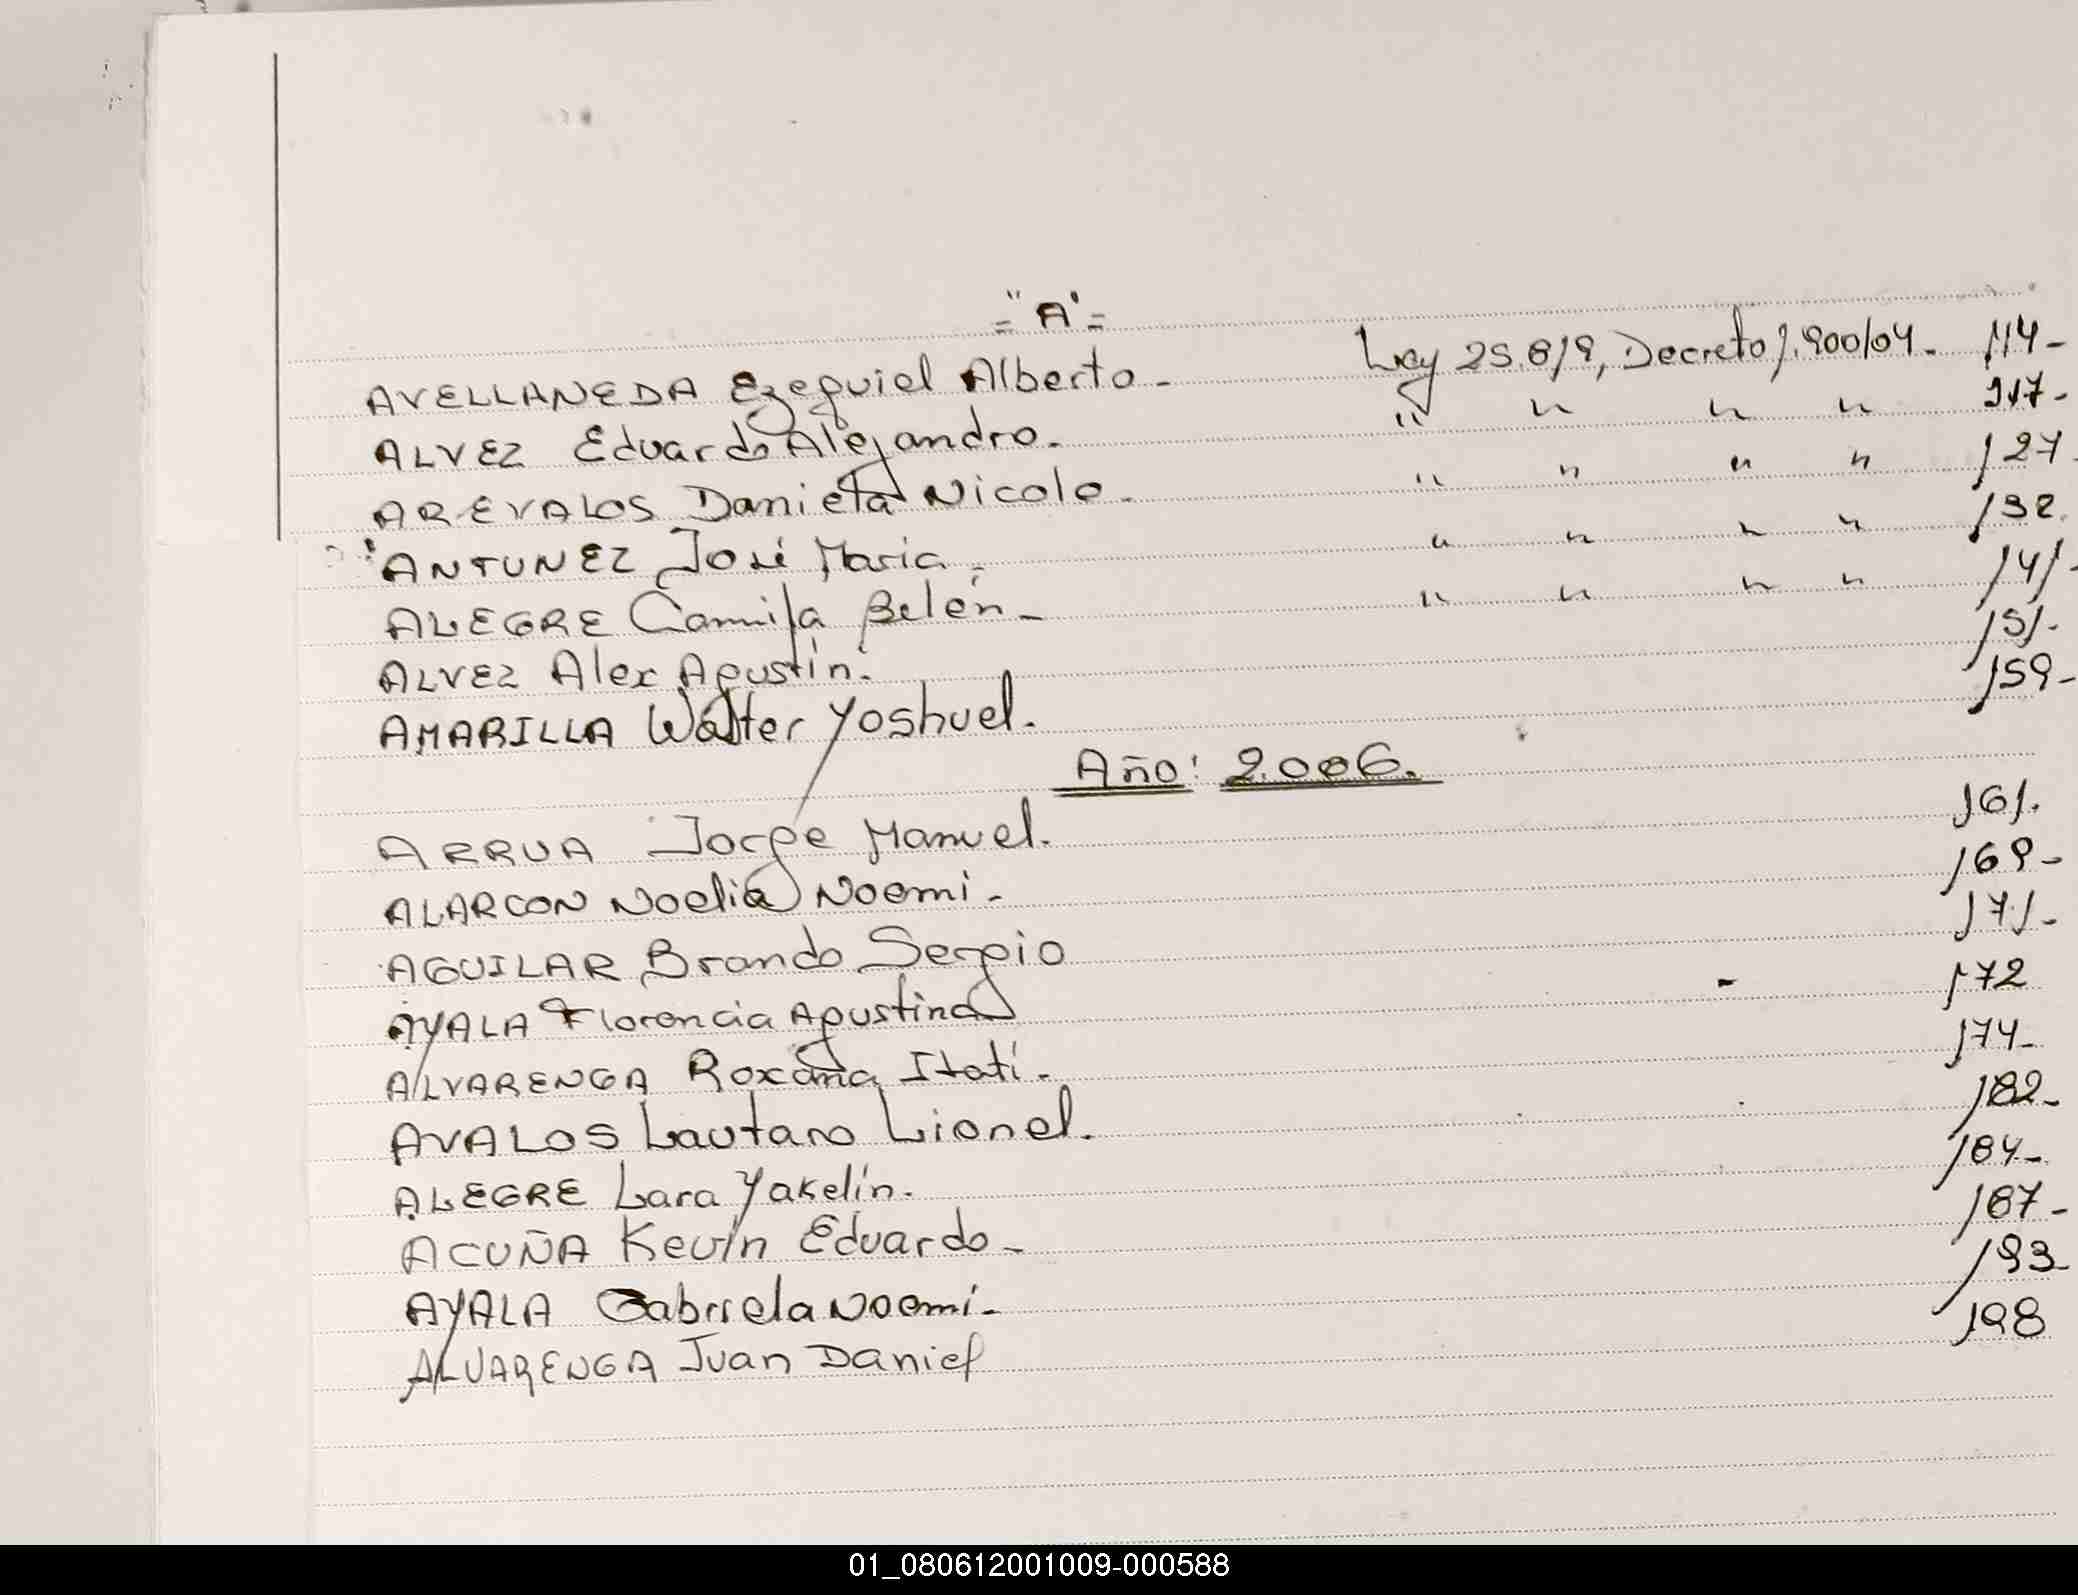 = "A" =
AVELLANEDA Ezequiel Alberto - Ley 25.819, Decreto 1.900/04. 114-
ALVEZ Eduardo Alejandro. " " " " 117-
AREVALOS Daniela Nicole - " " " " 127
ANTUNEZ José Maria. " " " " 132.
ALEGRE Camila Belén - " " " " 141-
ALVEZ Alex Agustín. 151-
AMARILLA Walter Yoshuel. 159-
Año: 2.006.
ARRUA Jorge Manuel. 161.
ALARCON Noelia Noemi - 169-
AGUILAR Brando Sergio 171-
AYALA Florencia Agustina - 172
ALVARENGA Roxana Itatí - 174-
AVALOS Lautaro Lionel. 182-
ALEGRE Lara Yakelín. 184-
ACUÑA Kevin Eduardo - 187-
AYALA Gabriela Noemí - 193-
ALVARENGA Juan Daniel 198
01_080612001009-000588